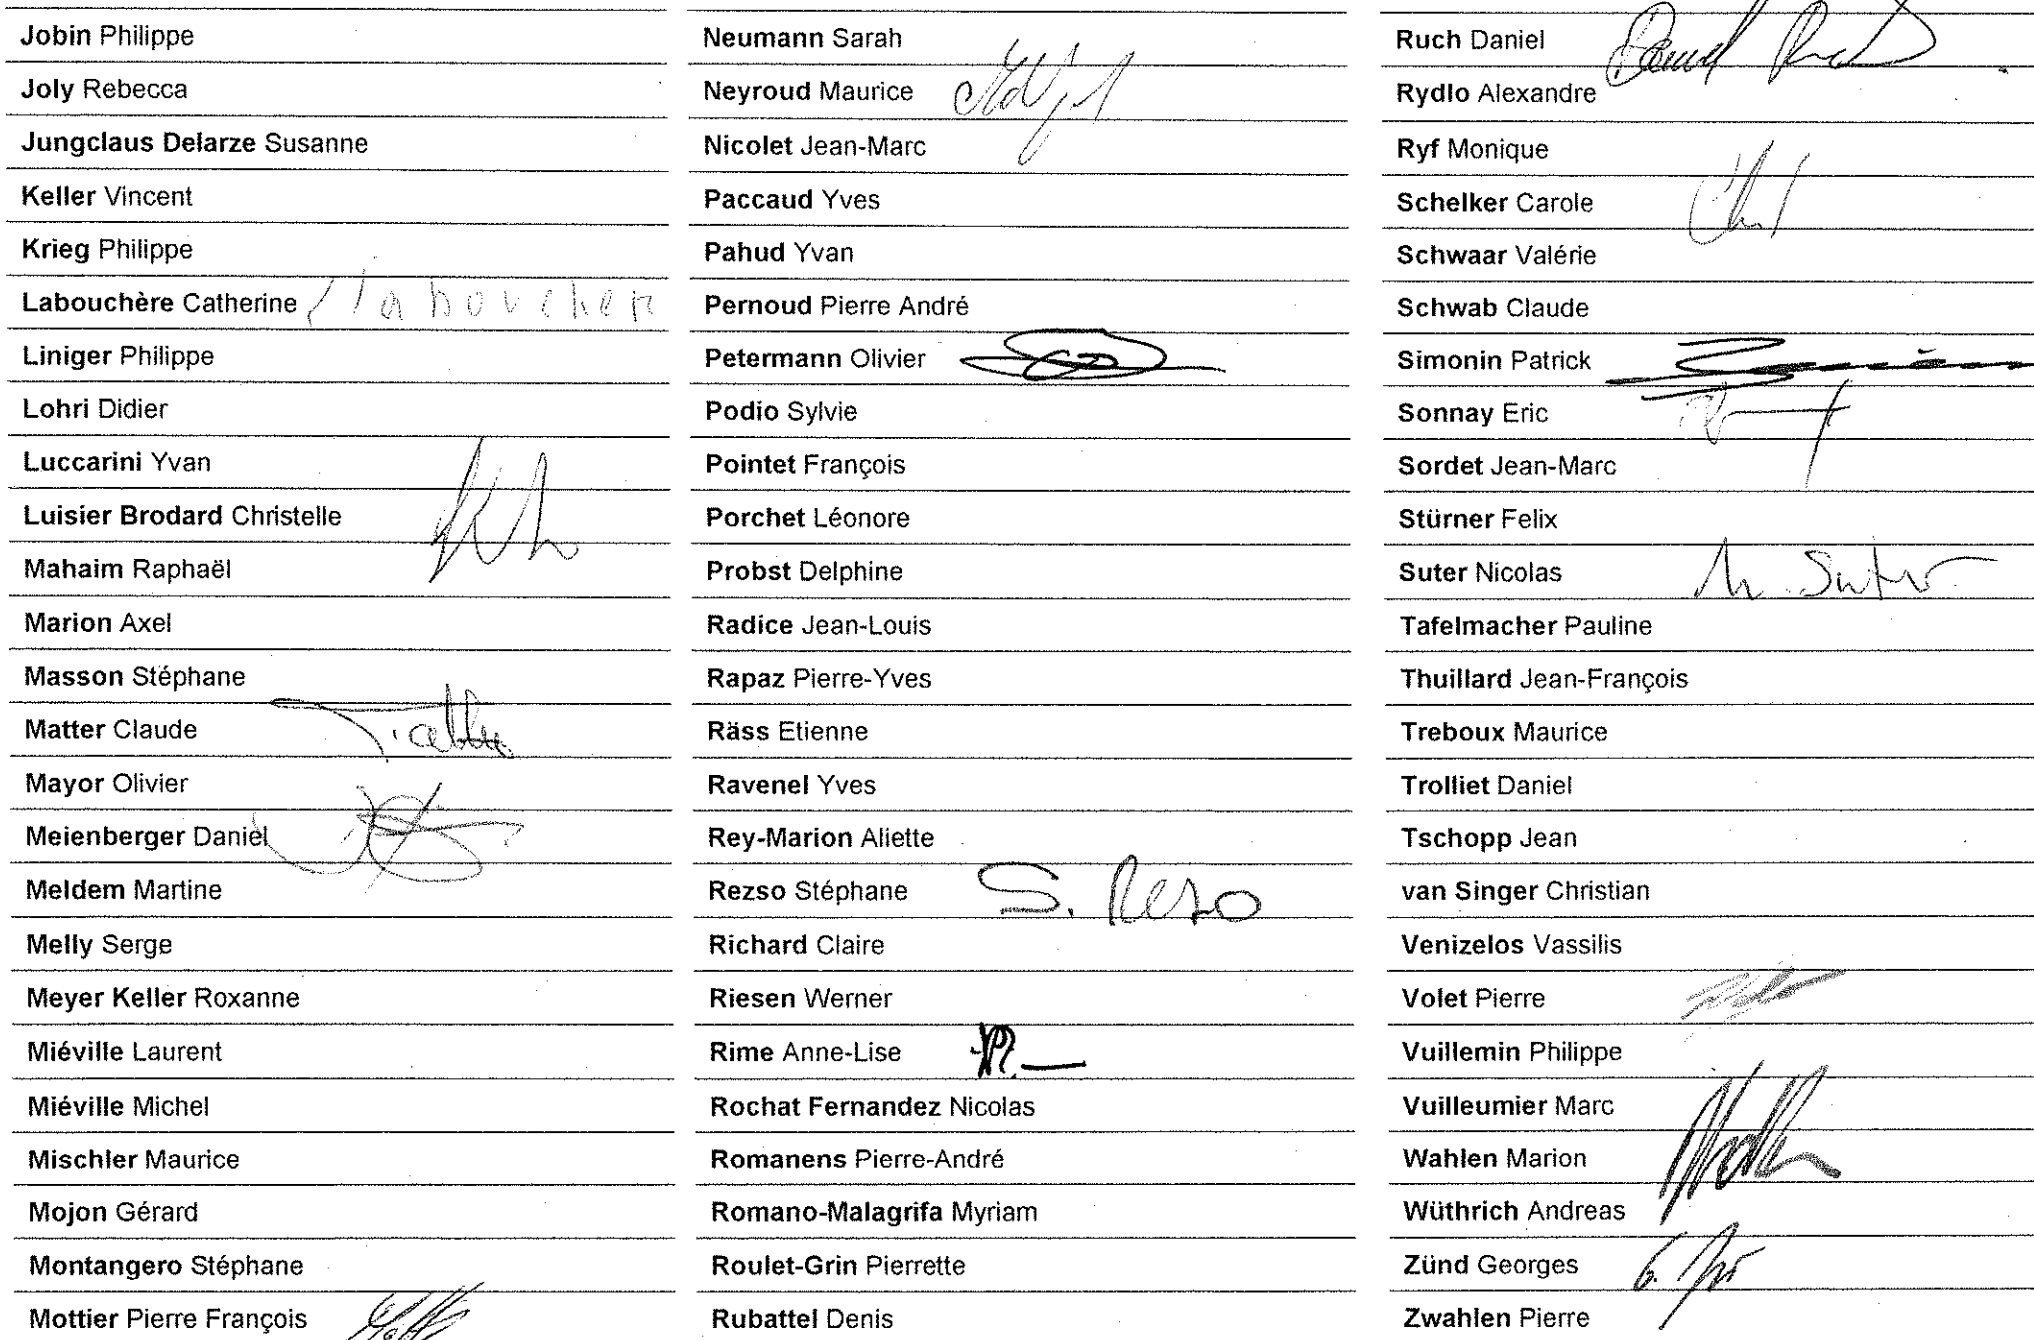 Jobin Philippe
Joly Rebecca
Jungclaus Delarze Susanne
Keller Vincent
Krieg Philippe
Labouchère Catherine
Liniger Philippe
Lohri Didier
Luccarini Yvan
Luisier Brodard Christelle
Mahaim Raphaël
Marion Axel
Masson Stéphane
Matter Claude
Mayor Olivier
Meienberger Daniel
Meldem Martine
Melly Serge
Meyer Keller Roxanne
Miéville Laurent
Miéville Michel
Mischler Maurice
Mojon Gérard
Montangero Stéphane
Mottier Pierre François
Neumann Sarah
Neyroud Maurice
Nicolet Jean-Marc
Paccaud Yves
Pahud Yvan
Pernoud Pierre André
Petermann Olivier
Podio Sylvie
Pointet François
Porchet Léonore
Probst Delphine
Radice Jean-Louis
Rapaz Pierre-Yves
Räss Etienne
Ravenel Yves
Rey-Marion Aliette
Rezso Stéphane S. Rezso
Richard Claire
Riesen Werner
Rime Anne-Lise
Rochat Fernandez Nicolas
Romanens Pierre-André
Romano-Malagrifa Myriam
Roulet-Grin Pierrette
Rubattel Denis
Ruch Daniel Daniel Ruch
Rydlo Alexandre
Ryf Monique
Schelker Carole
Schwaar Valérie
Schwab Claude
Simonin Patrick
Sonnay Eric
Sordet Jean-Marc
Stürner Felix
Suter Nicolas N. Suter
Tafelmacher Pauline
Thuillard Jean-François
Treboux Maurice
Trolliet Daniel
Tschopp Jean
van Singer Christian
Venizelos Vassilis
Volet Pierre
Vuillemin Philippe
Vuilleumier Marc
Wahlen Marion
Wüthrich Andreas
Zünd Georges
Zwahlen Pierre